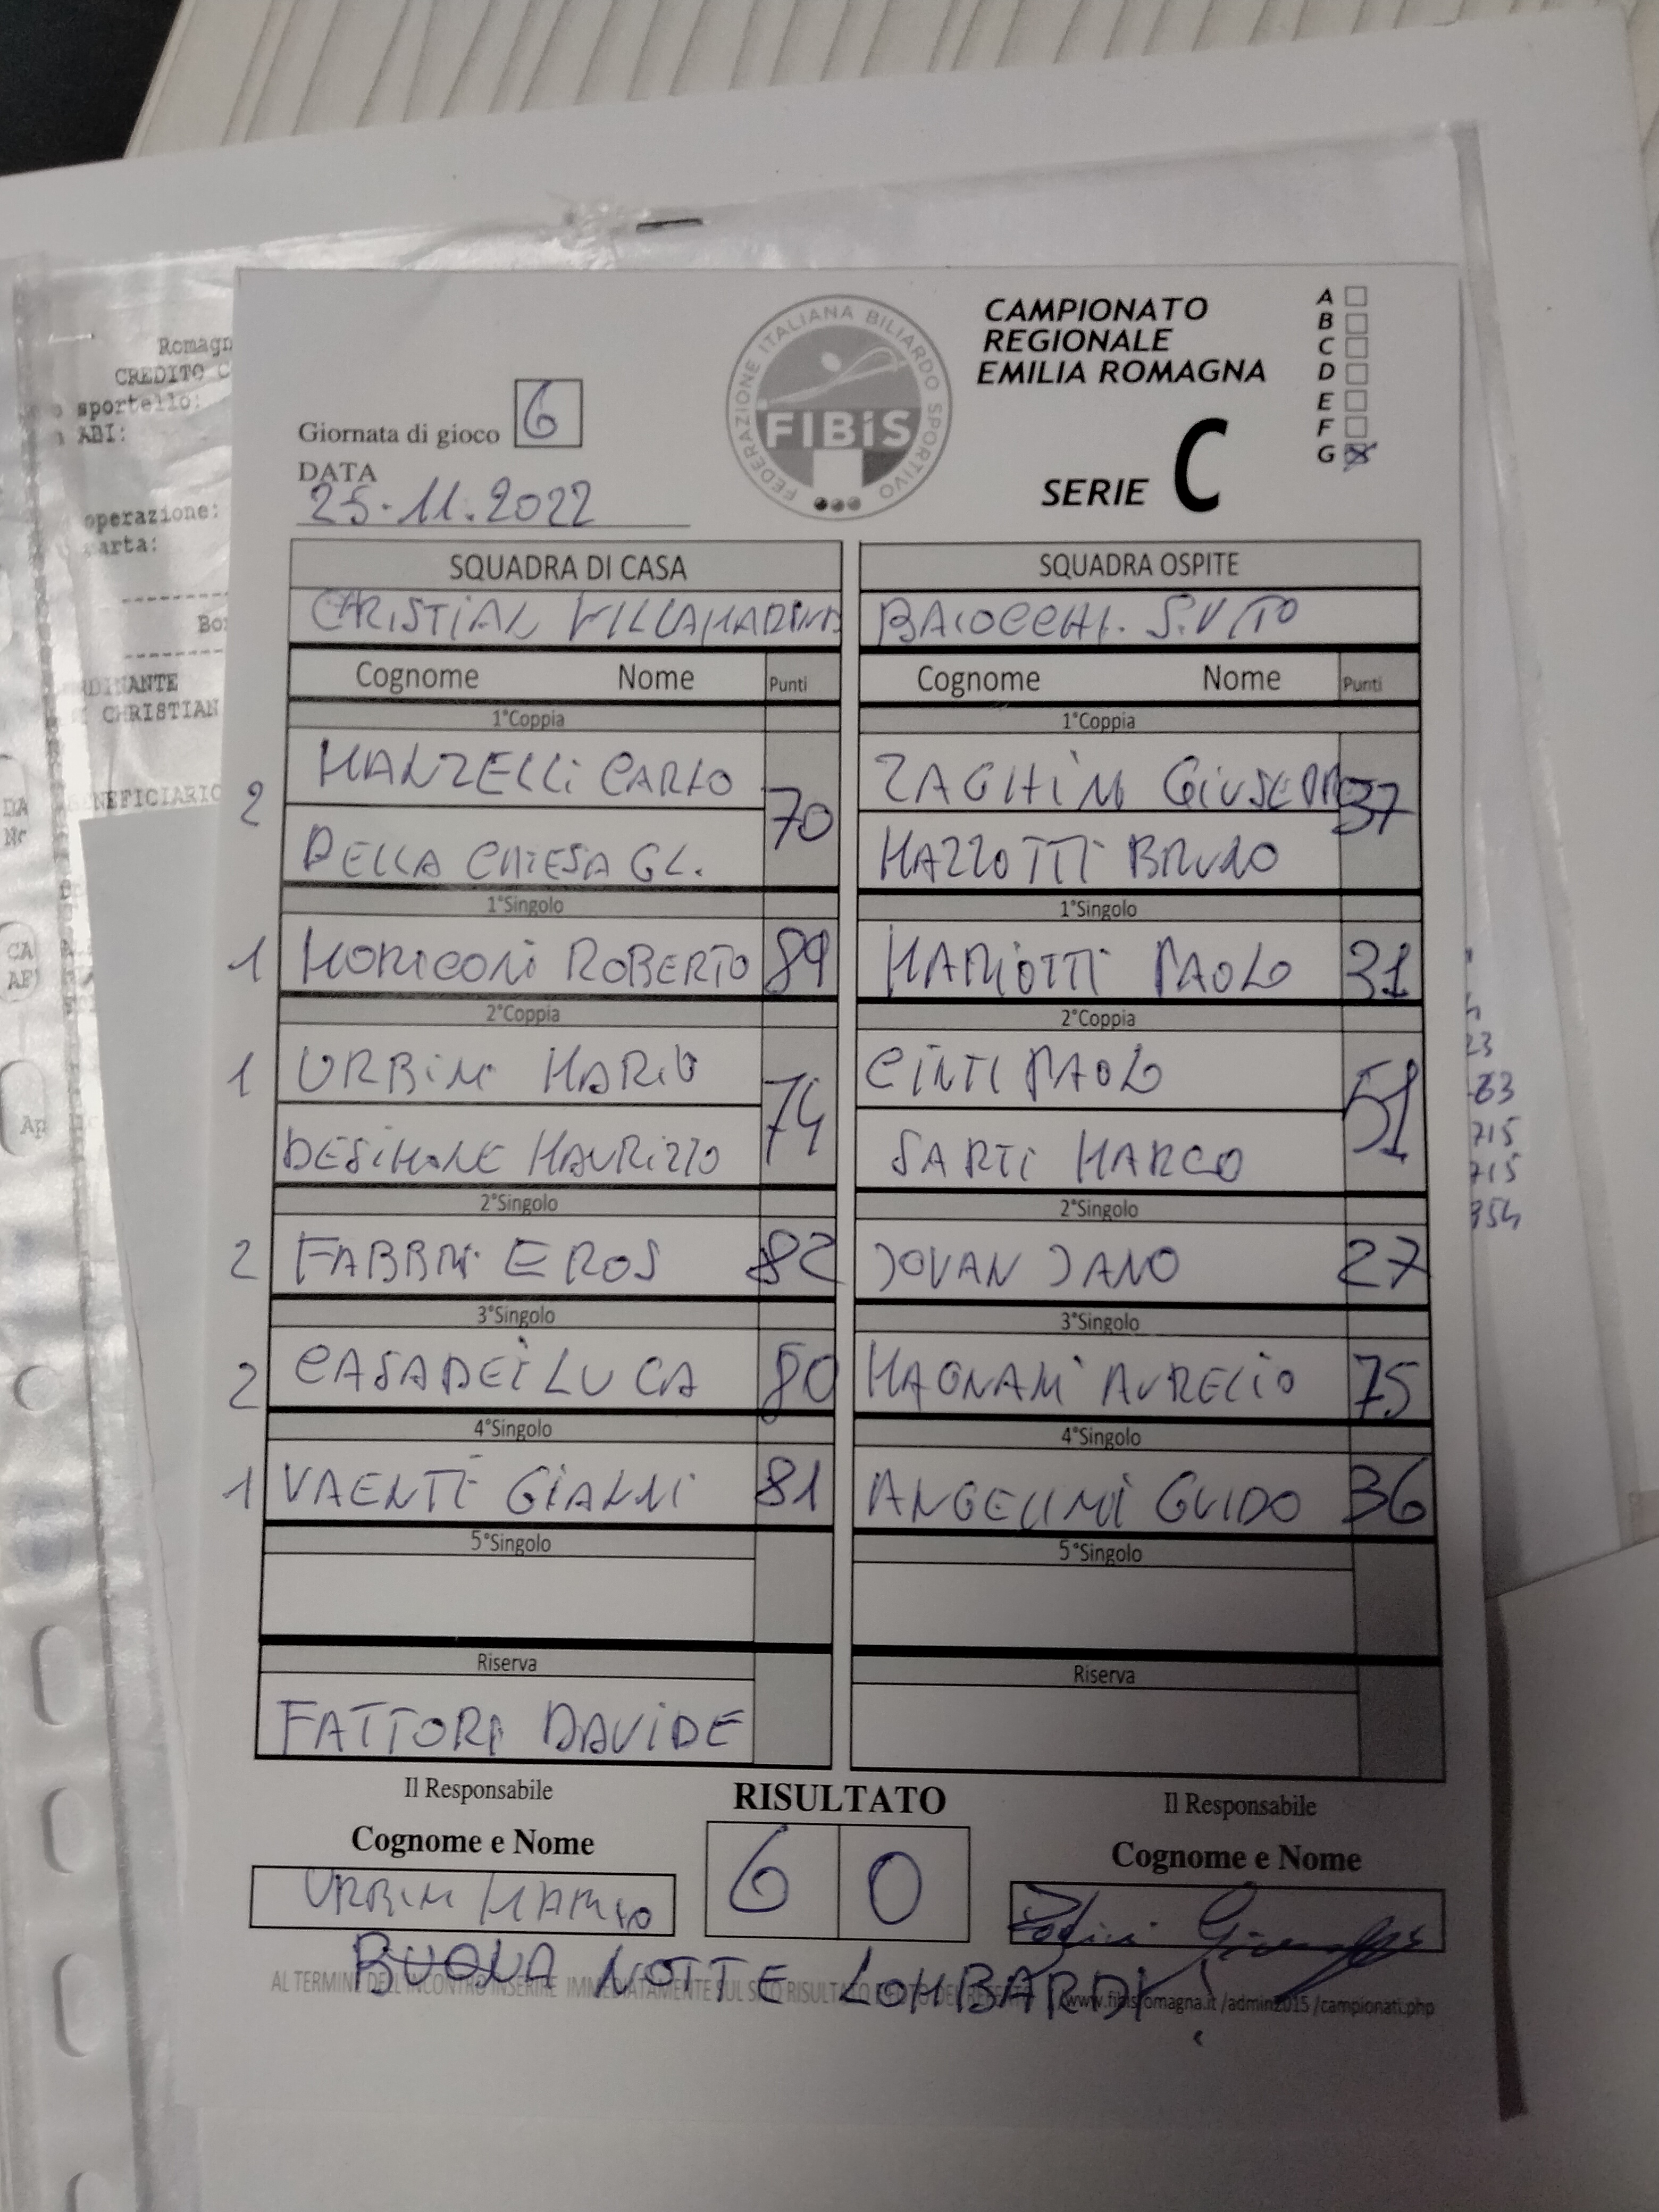 Romagn
CREDITO C
sportello:
ABI:
operazione:
arta:
Bo
DINANTE
CHRISTIAN
NEFICIARIO
FEDERAZIONE ITALIANA BILIARDO SPORTIVO
FIBiS
CAMPIONATO
REGIONALE
EMILIA ROMAGNA
SERIE C
A
B
C
D
E
F
G
Giornata di gioco 6
DATA
25.11.2022
SQUADRA DI CASA SQUADRA OSPITE
CRISTIAN VILLAMARINA BAIOCCHI. S.VITO
Cognome Nome Punti Cognome Nome Punti
1°Coppia 1°Coppia
2 MANZELLI CARLO 70 ZAGHINI GIUSEPPE 37
DELLA CHIESA GL. MAZZOTTI BRUNO
1°Singolo 1°Singolo
1 MORICONI ROBERTO 89 MARIOTTI PAOLO 31
2°Coppia 2°Coppia
1 URBINI MARIO 74 CINTI PAOLO 51
DESIMONE MAURIZIO SARTI MARCO
2°Singolo 2°Singolo
2 FABBRI EROS 82 JOVAN JANO 27
3°Singolo 3°Singolo
2 CASADEI LUCA 80 MAGNANI AURELIO 75
4°Singolo 4°Singolo
1 VAENTE GIANNI 81 ANGELINI GUIDO 36
5°Singolo 5°Singolo
Riserva Riserva
FATTORI DAVIDE
Il Responsabile RISULTATO Il Responsabile
Cognome e Nome 6 0 Cognome e Nome
URBINI MARIO
BUONA NOTTE LOMBARDI!
AL TERMINE DELL'INCONTRO INSERIRE IMMEDIATAMENTE SUL SITO RISULTATO www.fibisromagna.it/admin2015/campionati.php
23
63
715
715
354